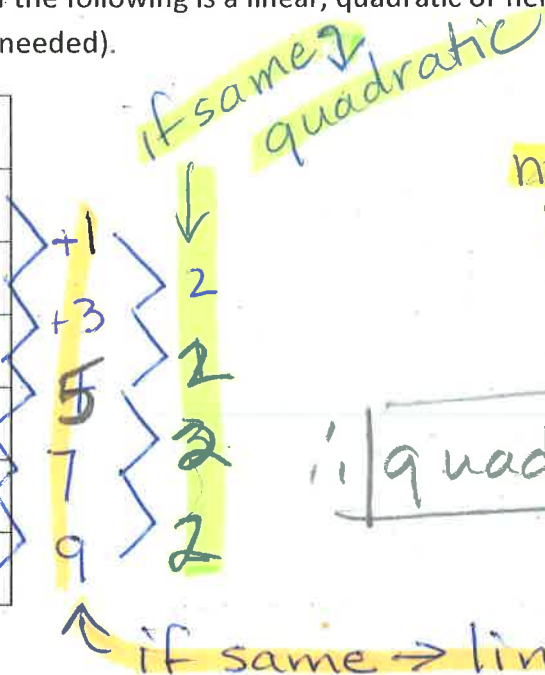 the following is a linear, quadratic or
needed).
if same
quadratic
+1
2
+3
2
5
2
7
2
9
∴ quad
if same → lin